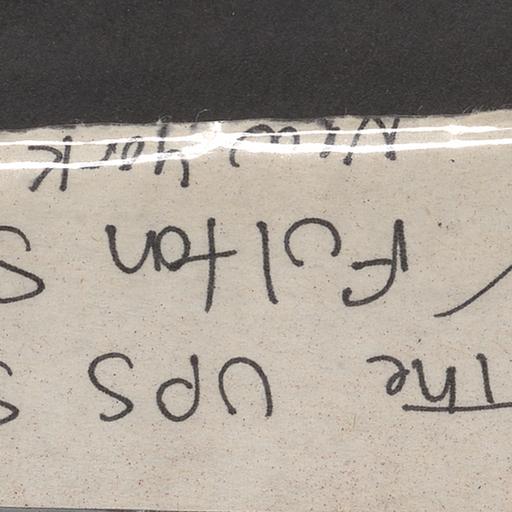 The UPS S
/ Fulton S
New York